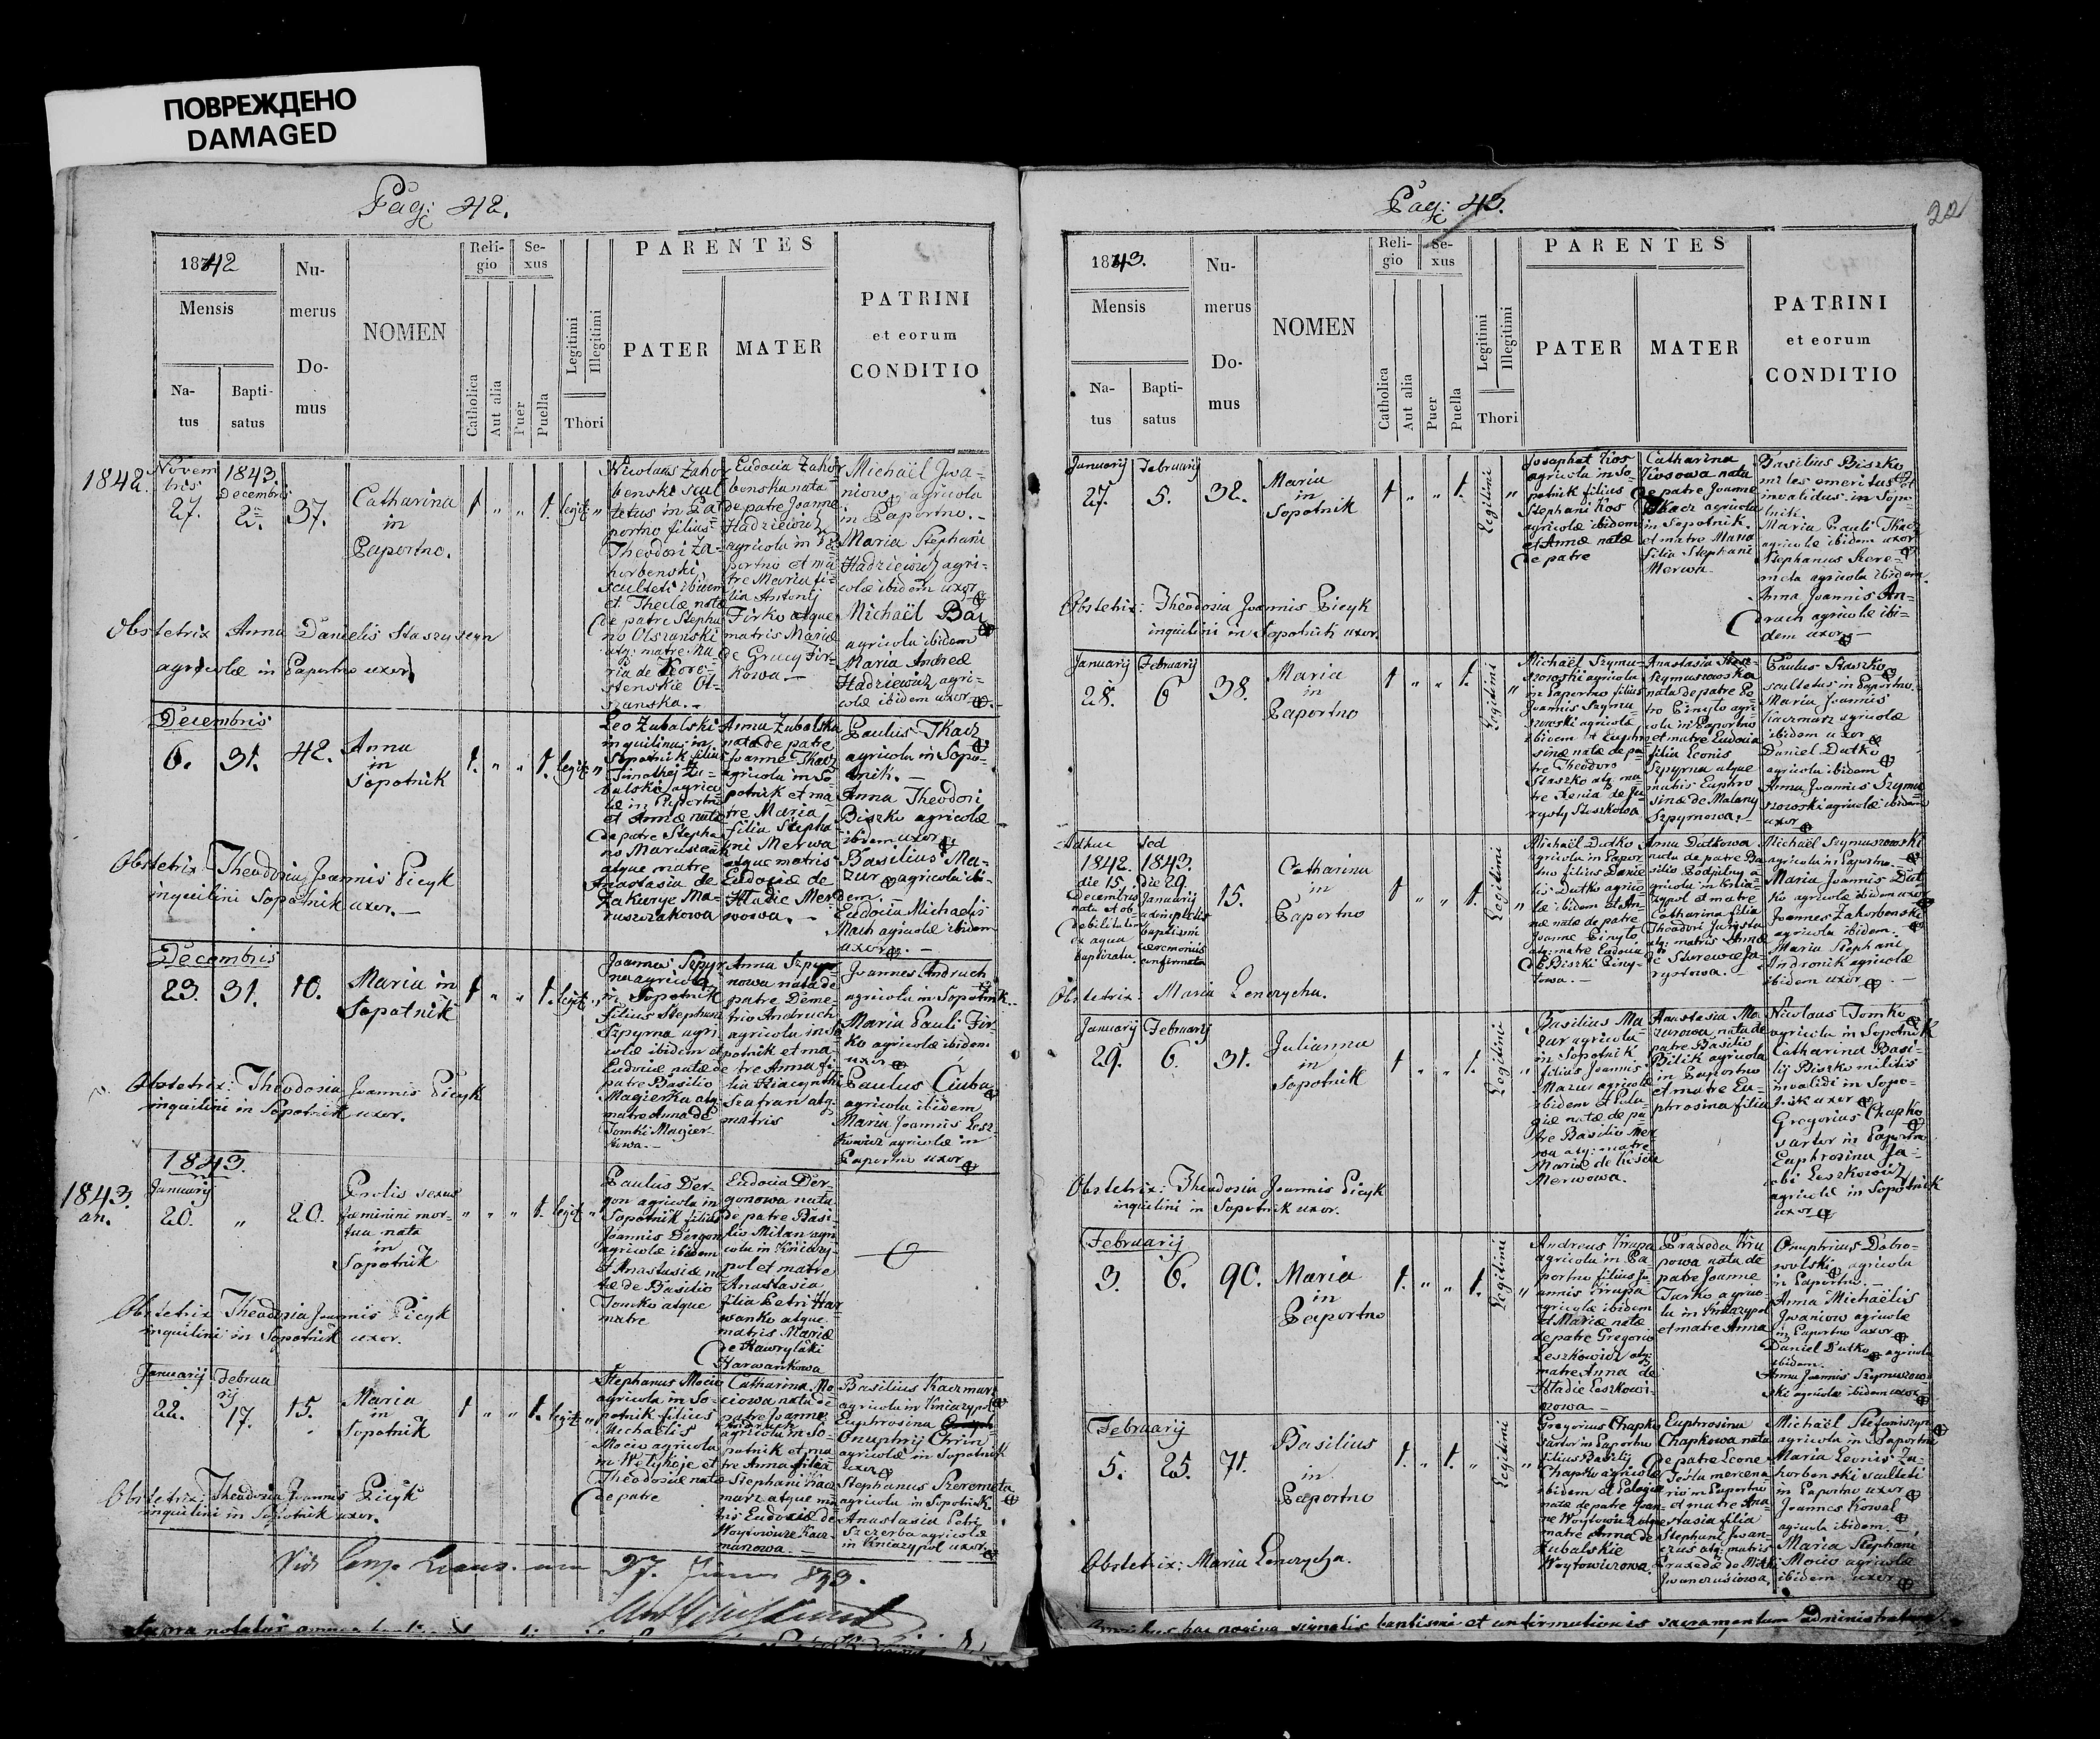 ПОВРЕЖДЕНО
DAMAGED
Pag: 42.
1842
Mensis
Na-
tus
Bapti-
satus
Nu-
merus
Do-
mus
NOMEN
Reli-
gio
Catholica
Aut alia
Se-
xus
Puer
Puella
Legitimi
Illegitimi
Thori
PARENTES
PATER
MATER
PATRINI
et eorum
CONDITIO
1842.
Novem
bris
27.
1843.
Decembris
37.
Catharina
in
Paportno.
legit
Nicolaus Zahor
benski scul
tetus in Pa
portno filius
Theodori Za-
horbenski,
sculteti ibidem
et Theclæ natæ
de patre Stepha
no Olszanski
atq: matre Ma
ria de
Eudocia Zahor
benska nata
de patre Joanne
Hadziewicz
agricola in Pa
portno et ma
tre Maria fi-
lia Antonij
Firko atque
matris Mariæ
de Grucy Fir-
kowa.—
Michaël Jwa-
niow agricola
in Paportno.—
Maria Stephani
Hadziewicz agri-
colæ ibidem uxor
Michaël
agricola ibidem
Maria Andreæ
Hadziewicz agri-
colæ ibidem uxor
Obstetrix Anna Danielis Staszyszyn
agricolæ in Paportno uxor
Decembris
6.
31.
42.
Anna
in
Sopotnik
legit
Leo Zubalski
inquilinus in
Sopotnik filius
Timothej Zu-
balski agrico
læ in Paportno
et Annæ natæ
de patre Stepha
no Maruszczak
atque matre
Anastasia de
Zakurye Ma-
ruszczakowa
Anna Zubalska
nata de patre
Joanne Tkacz
agricola in So
potnik et ma
tre Maria
filia Stepha
ni Merwa
atque matris
Eudociæ de
Hladic Mer
wowa.—
Paulus Tkacz
agricola in Sopo-
tnik.—
Anna Theodori
Biszko agricolæ
ibidem uxor
Basilius Ma-
zur agricola ibi-
dem.—
Eudocia Michaelis
Mach agricolæ ibidem
uxor.—
Obstetrix Theodosia Joannis Picyk
inquilini Sopotnik uxor.—
Decembris
23.
31.
10.
Maria in
Sopotnik
legit
Joannes Szpyr
na agricola
in Sopotnik
filius Stephani
Szpyrna agri
colæ ibidem et
Eudociæ natæ de
patre Basilio
Magierka atq
matre Anna de
Tomki Magier-
kowa.—
Anna Szpyr
nowa nata de
patre Deme-
trio Andruch
agricola in So
potnik et ma-
tre Anna fi-
lia Hiacynthi
Szafran atq.
matris
Joannes Andruch
agricola in Sopotnik
Maria Pauli Fir-
ko agricolæ ibidem
uxor
Paulus Ciuba
agricola ibidem
Maria Joannis Lesz
kowicz agricolæ in
Paportno uxor
Obstetrix: Theodosia Joannis Picyk
inquilini in Sopotnik uxor.
1843
1843.
an.
Januarij
20.
20.
Prolis sexus
fæminini mor-
tua nata
in
Sopotnik
legit
Paulus Der-
gon agricola in
Sopotnik filius
Joannis Dergon
agricolæ ibidem
et Anastasiæ na
tæ de Basilio
Tomko atque
matre
Eudocia Der-
gonowa nata
de patre Basi
lio Milan agri
cola in Kniazy-
pol et matre
Anastasia
filia Petri Har
wanko atque
matris Mariæ
de Hawrylaki
Harwankowa
Obstetrix Theodosia Joannis Picyk
inquilini in Sopotnik uxor.
Januarij
22.
Februa
rij
17.
15.
Maria
in
Sopotnik
legit
Stephanus Mocio
agricola in So-
potnik filius
Michaëlis
Mocio agricola
in Wetyhoje et
Theodosiæ natæ
de patre
Catharina Mo
ciowa nata de
patre Joanne
Andruch
agricola in So-
potnik et ma
tre Anna filia
Stephani Kacz
marz atque ma
tris Eudociæ de
Woytowicze Kacz-
marzowa.—
Basilius Kaczmarz
agricola in Kniazypol
Euphrosina
Onuphrij
agricolæ in Sopotnik
uxor
Stephanus Szeremeta
agricola in Sopotnik
Anastasia Petri
Szczerba agricolæ
in Kniazypol uxor
Obstetrix: Theodosia Joannis Picyk
inquilini in Sopotnik uxor.
27.
Pag: 43.
22
1843.
Mensis
Na-
tus
Bapti-
satus
Nu-
merus
Do-
mus
NOMEN
Reli-
gio
Catholica
Aut alia
Se-
xus
Puer
Puella
Legitimi
Illegitimi
Thori
PARENTES
PATER
MATER
PATRINI
et eorum
CONDITIO
Januarij
27.
Februarij
5.
32.
Maria
in
Sopotnik
Legitimi
Josaphat Kos
agricola in So-
potnik filius
Stephani Kos
agricolæ ibidem
et Annæ natæ
de patre
Catharina
Kosowa nata
de patre Joanne
Tkacz agricola
in Sopotnik.
et matre Maria
filia Stephani
Merwa
Basilius Biszko
miles emeritus et
invalidus in Sopo-
tnik.
Maria Pauli Tkacz
agricolæ ibidem uxor
Stephanus Szere-
meta agricola ibidem.
Anna Joannis An-
druch agricolæ ibi-
dem uxor.—
Obstetrix: Theodosia Joannis Picyk
inquilini in Sopotnik uxor.
Januarij
28.
Februarij
6
38.
Maria
in
Paportno
Legitimi
Michaël Szymu-
szowski agricola
in Paportno filius
Joannis Szymu-
szowski agricolæ
ibidem et Euphro
sinæ natæ de pa-
tre Theodoro
Staszko atq. ma
tre Xenia de
Staszkowa
Anastasia
Szymuszowska
nata de patre Pe
tro Pinylo agri
cola in Paportno
et matre Eudocia
filia Leonis
Szpyrna atque
matris Euphro
sinæ de Malany
Szpyrnowa.—
Paulus Staszko
scultetus in Paportno.
Maria Joannis
Kaczmarz agricolæ
ibidem uxor
Daniel Dutko
agricola ibidem
Anna Joannis Szymu
szowski agricolæ ibidem
uxor
Adhuc
1842.
die 15
Decembris
nata et ob
debilitatem
ex aqua
baptizata.
Sed
1843.
die 29.
Januarij
adimpletis
baptismi
cæremoniis
confirmata
15.
Catharina
in
Paportno
Legitimi
Michaël Dutko
agricola in Papor
tno filius Danie-
lis Dutko agrico-
læ ibidem et An-
næ natæ de patre
Joanne Pinylo
atq: matre Eudocia
de Biszki Piny-
lowa.—
Anna Dutkowa
nata de patre Ba
silio Podpilny a-
gricola in Knia-
zypol et matre
Catharina filia
Theodori
atq: matris Annæ
Michaël Szymuszowski
agricola in Paportno.—
Maria Joannis Dut
ko agricolæ ibidem uxor
Joannes Zahorbenski
agricola ibidem.
Maria Stephani
Andronik agricolæ
ibidem uxor
Obstetrix: Maria Lenczycha.
Januarij
29.
Februarij
6.
31.
Julianna
in
Sopotnik
Legitimi
Basilius Ma
zur agricola
in Sopotnik
filius Joannis
Mazur agricolæ
ibidem et Pela-
giæ natæ de pa
tre Basilio Mer
wa atq: matre
Maria de
Merwowa.
Anastasia Ma
zurowa nata de
patre Basilio
Bilik agricola
in Paportno
et matre Eu-
phrosina filia
Nicolaus Tomko
agricola in Sopotnik
Catharina Basi-
lij Biszko militis
invalidi in Sopo-
tnik uxor
Gregorius Chapko
sartor in Paportno
Euphrosina Ja-
cobi Leszkowicz
agricolæ in Sopotnik
uxor
Obstetrix: Theodosia Joannis Picyk
inquilini in Sopotnik uxor.
Februarij
3.
6.
90.
Maria
in
Paportno
Legitimi
Andreas Krupa
agricola in Pa
portno filius Jo
annis Krupa
agricolæ ibidem
et Mariæ natæ
de patre Gregorio
Leszkowicz atq:
matre Anna de
Hladic Leszkowi-
czowa—
Praxeda Kru
powa nata de
patre Joanne
Turko agrico
la in Kniazypol
et matre Anna
Onuphrius Dobro-
wolski agricola
in Paportno.—
Anna Michaëlis
Jwaniow agricolæ
in Paportno uxor
Daniel Dutko agricola
ibidem.
Anna Joannis Szymuszow-
ski agricolæ ibidem uxor
Februarij
5.
25.
71.
Basilius
in
Paportno
Legitimi
Gregorius Chapko
sartor in Paportno
filius Basilij
Chapko agricolæ
ibidem et Pelagiæ
natæ de patre Joan-
ne Woytowicz atque
matre Anna de
Zubalskie
Woytowiczowa.
Euphrosina
Chapkowa nata
de patre Leone
Tesla mercena
rio in Paportno
et matre Ana
stasia filia
Stephani Jwan-
czus atq: matris
Praxedæ de
Jwanczusiowa,
Michaël Stefaniszyn
agricola in Paportno
Maria Leonis Za-
horbenski sculteti
in Paportno uxor
Joannes Kowal
agricola ibidem.—
Maria Stephani
Mocio agricolæ
ibidem uxor
Obstetrix: Maria Lenczycha.
hac pagina signatis baptismi et confirmationis sacramentum administratum